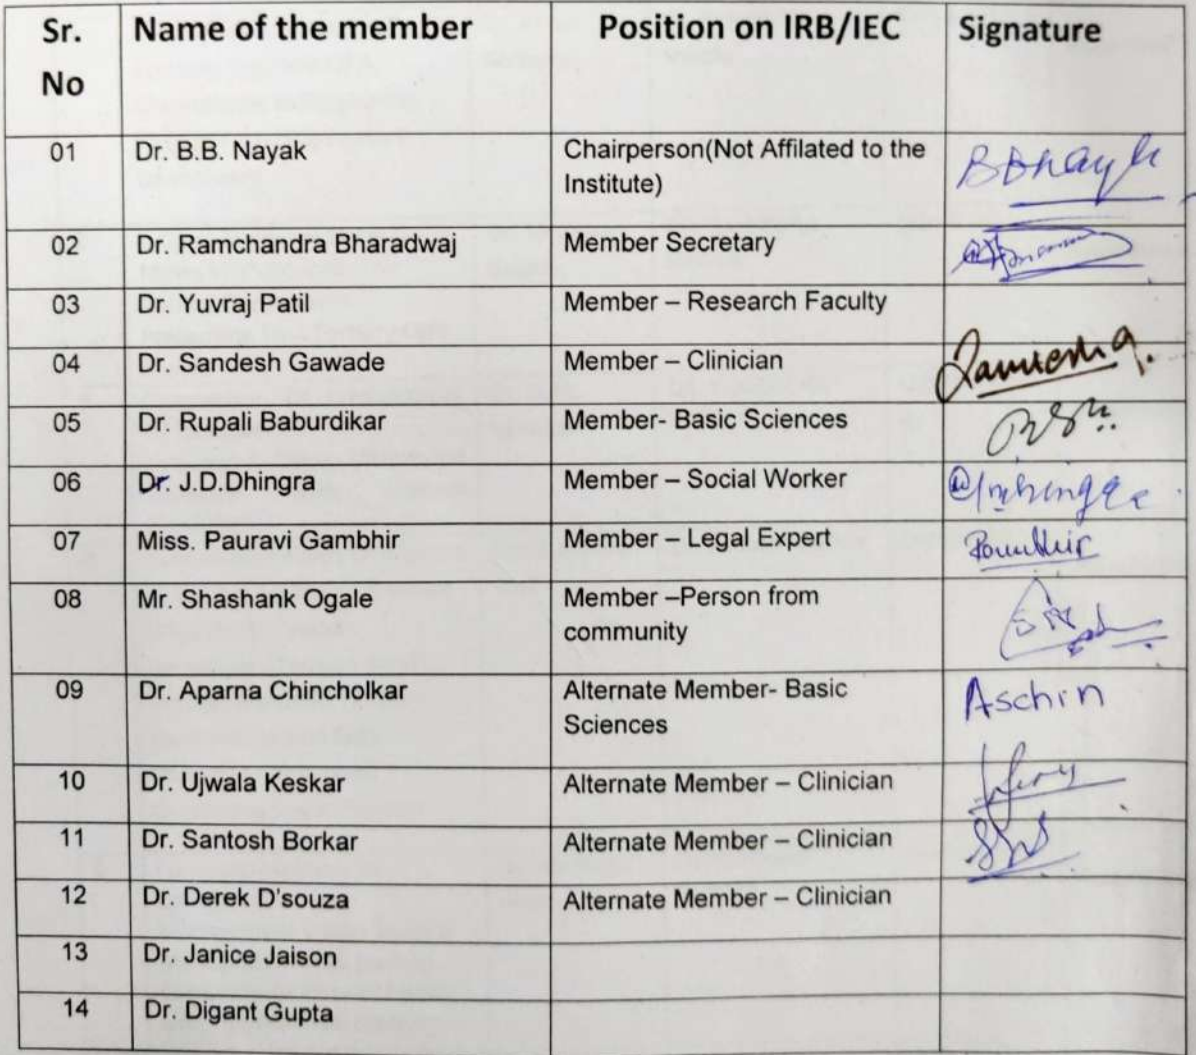 Sr. No Name of the member Position on IRB/IEC Signature
01 Dr. B.B. Nayak Chairperson(Not Affilated to the
Institute)
BBNayak
02 Dr. Ramchandra Bharadwaj Member Secretary
03 Dr. Yuvraj Patil Member – Research Faculty
04 Dr. Sandesh Gawade Member – Clinician
05 Dr. Rupali Baburdikar Member- Basic Sciences
06 Dr. J.D.Dhingra Member – Social Worker
07 Miss. Pauravi Gambhir Member – Legal Expert
08 Mr. Shashank Ogale Member –Person from
community
09 Dr. Aparna Chincholkar Alternate Member- Basic
Sciences
Aschin
10 Dr. Ujwala Keskar Alternate Member – Clinician
11 Dr. Santosh Borkar Alternate Member – Clinician
12 Dr. Derek D'souza Alternate Member – Clinician
13 Dr. Janice Jaison
14 Dr. Digant Gupta